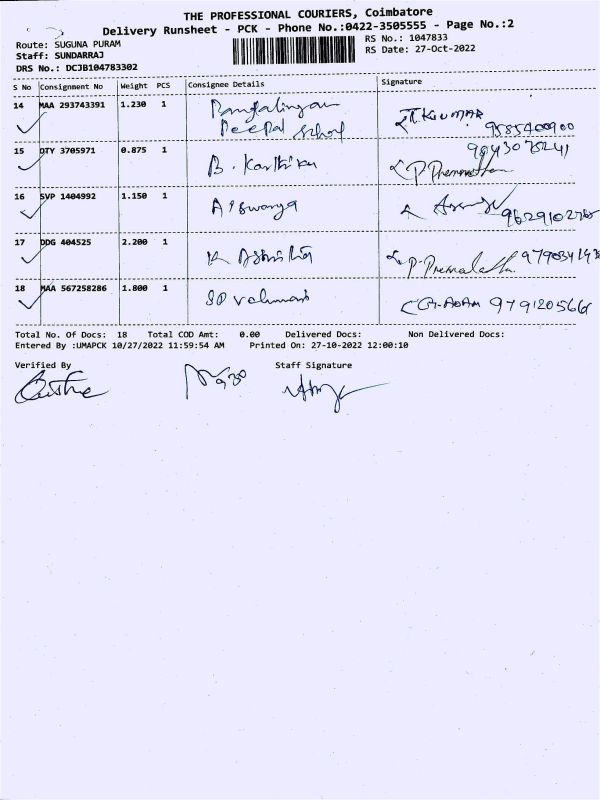 THE PROFESSIONAL COURIERS, Coimbatore
Delivery Runsheet - PCK - Phone No.:0422-3505555 - Page No.:2
Route: SUGUNA PURAM
RS No.: 1047833
Staff: SUNDARRAJ
RS Date: 27-Oct-2022
DRS No.: DCJB104783302
S No Consignment No Weight PCS Consignee Details Signature
14 MAA 293743391 1.230 1 T.KUMAR
9585400900
15 DTY 3705971 0.875 1 B. Karthika
16 SVP 1404992 1.150 1 Aiswarya
17 DDG 404525 2.200 1 K
18 MAA 567258286 1.800 1 9791205661
Total No. Of Docs: 18 Total COD Amt: 0.00 Delivered Docs: Non Delivered Docs:
Entered By :UMAPCK 10/27/2022 11:59:54 AM Printed On: 27-10-2022 12:00:10
Verified By Staff Signature